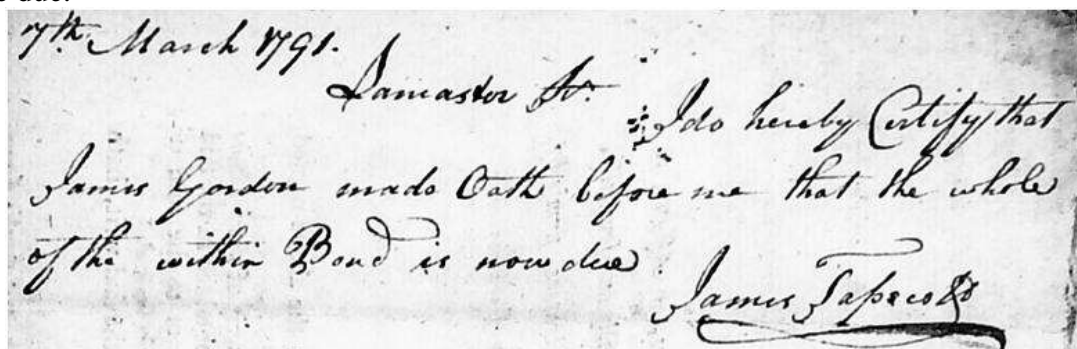 7th. March 1791.
Lancaster
I do hereby Certify that
James Gordon made Oath before me that the whole
of the within Bond is now due
James